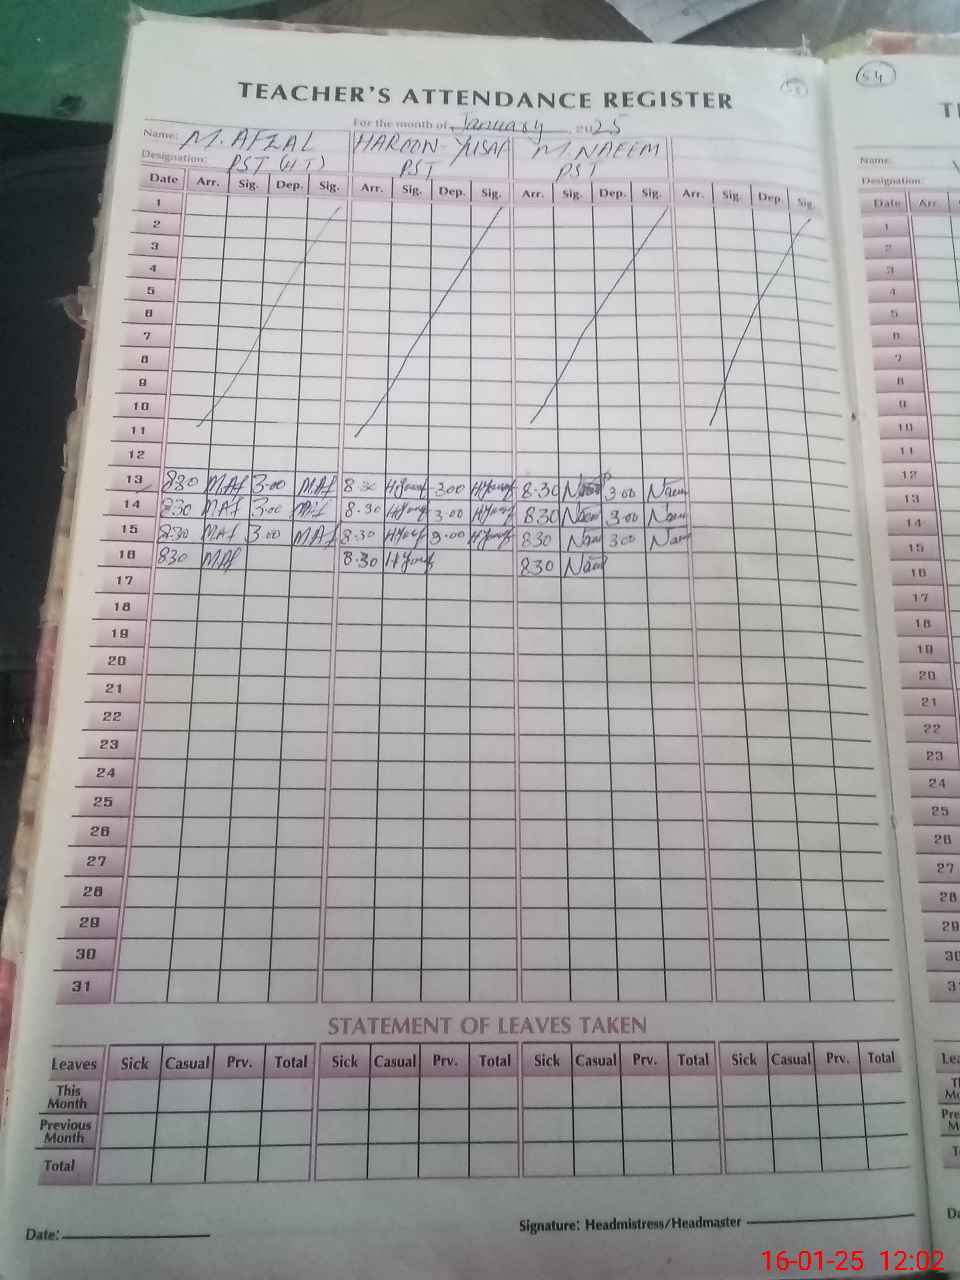 53
54
TEACHER'S ATTENDANCE REGISTER
For the month of January, 2025
Name: M. AFZAL HAROON YUSAF M. NAEEM
Designation: PST (HT) PST PST
Date Arr. Sig. Dep. Sig. Arr. Sig. Dep. Sig. Arr. Sig. Dep. Sig. Arr. Sig. Dep. Sig.
1
2
3
4
5
6
7
8
9
10
11
12
13 830 MAf 3.00 MAf 8.30 HYousf 3.00 HYousf 8.30 3.00 Naem
14 830 MAf 3.00 MAf 8.30 HYousf 3.00 HYousf 830 Naem 3.00 Naem
15 830 MAf 3.00 MAf 8.30 HYousf 3.00 HYousf 830 Naem 300 Naem
16 830 MAf 8.30 HYousf 830 Naem
17
18
19
20
21
22
23
24
25
26
27
28
29
30
31
STATEMENT OF LEAVES TAKEN
Leaves Sick Casual Prv. Total Sick Casual Prv. Total Sick Casual Prv. Total Sick Casual Prv. Total
This Month
Previous Month
Total
Date:
Signature: Headmistress/Headmaster
Name:
Designation:
Date Arr.
1
2
3
4
5
6
7
8
9
10
11
12
13
14
15
16
17
18
19
20
21
22
23
24
25
26
27
28
29
30
16-01-25 12:02